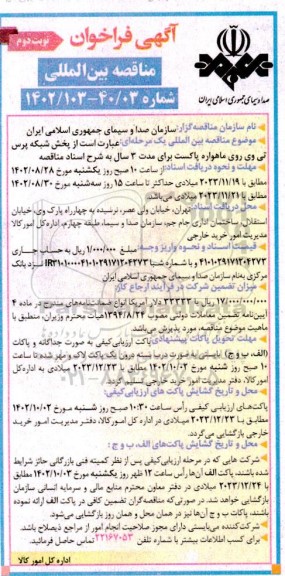 آگهی فراخوان
نوبت دوم
مناقصه بین المللی
شماره ۴۰/۰۳-۱۴۰۲/۱۰۳
صدا و سیمای جمهوری اسلامی ایران
نام سازمان مناقصه‌گزار: سازمان صدا و سیمای جمهوری اسلامی ایران
موضوع مناقصه بین المللی یک مرحله‌ای: عبارت است از پخش شبکه پرس
تی وی روی ماهواره پاکست برای مدت ۳ سال به شرح اسناد مناقصه
مهلت و نحوه دریافت اسناد: از ساعت ۱۰ صبح روز یکشنبه مورخ ۱۴۰۲/۰۸/۲۸
مطابق با ۲۰۲۳/۱۱/۱۹ میلادی حداکثر تا ساعت ۱۵ روز سه‌شنبه مورخ ۱۴۰۲/۰۸/۳۰
مطابق با ۲۰۲۳/۱۱/۲۱ میلادی می‌باشد
محل دریافت اسناد: تهران، خیابان ولی عصر، نرسیده به چهارراه پارک وی، خیابان
استقلال، ساختمان اداری جام جم، سازمان صدا و سیما، طبقه چهارم، اداره کل امور کالا
مدیریت امور خرید خارجی
قیمت اسناد و نحوه واریز وجه: مبلغ ۱/۰۰۰/۰۰۰ ریال به حساب جاری
۴۱۰۱۰۲۹۱۷۱۲۰۴۲۷۳ و با شماره شبا نزد بانک
مرکزی به‌نام سازمان صدا و سیمای جمهوری اسلامی ایران
میزان تضمین شرکت در فرآیند ارجاع کار:
۱۷/۰۰۰/۰۰۰/۰۰۰ ریال یا ۳۳۳۳۲ دلار آمریکا انواع ضمانت‌نامه‌های مندرج در ماده ۴
آیین‌نامه تضمین معاملات دولتی مصوب ۱۳۹۴/۸/۲۴ هیات محترم وزیران، منطبق با
ماهیت موضوع مناقصه، مورد پذیرش می‌باشد
مهلت تحویل پاکات پیشنهادی: پاکت ارزیابی کیفی به صورت جداگانه و پاکات
(الف، ب و ج) بایستی به صورت دربسته درون یک پاکت لاک و مهر شده تا ساعت
۱۰ صبح روز شنبه مورخ ۱۴۰۲/۱۰/۰۲ مطابق با ۲۰۲۳/۱۲/۲۳ میلادی به اداره کل
امور کالا، دفتر مدیریت امور خرید خارجی تسلیم گردد
محل و تاریخ گشایش پاکت های ارزیابی کیفی:
پاکت‌های ارزیابی کیفی رأس ساعت ۱۰:۳۰ صبح روز شنبه مورخ ۱۴۰۲/۱۰/۰۲
مطابق با ۲۰۲۳/۱۲/۲۳ میلادی در اداره کل امور کالا، دفتر مدیریت امور خرید
خارجی بازگشایی می‌گردد.
محل و تاریخ گشایش پاکت‌های الف، ب و ج :
شرکت هایی که در مرحله ارزیابی کیفی پس از نظر کمیته فنی بازرگانی حائز شرایط
شده باشند، پاکات الف آن‌ها رأس ساعت ۱۲ ظهر روز یکشنبه مورخ ۱۴۰۲/۱۰/۰۳ مطابق
با ۲۰۲۳/۱۲/۲۴ میلادی در دفتر معاون محترم منابع مالی و سرمایه انسانی سازمان
بازگشایی خواهد شد. در صورتی که مناقصه‌گران تضمین کافی در پاکت الف ارائه نموده
باشند، پاکات ب و ج آن‌ها نیز در همان محل و همان روز بازگشایی می‌شود.
شرکت‌کننده می‌بایستی دارای مجوز صلاحیت انجام امور از مراجع ذیصلاح باشد.
برای کسب اطلاعات بیشتر با شماره تلفن ۲۲۱۶۷۰۵۳ تماس حاصل فرمائید.
اداره کل امور کالا